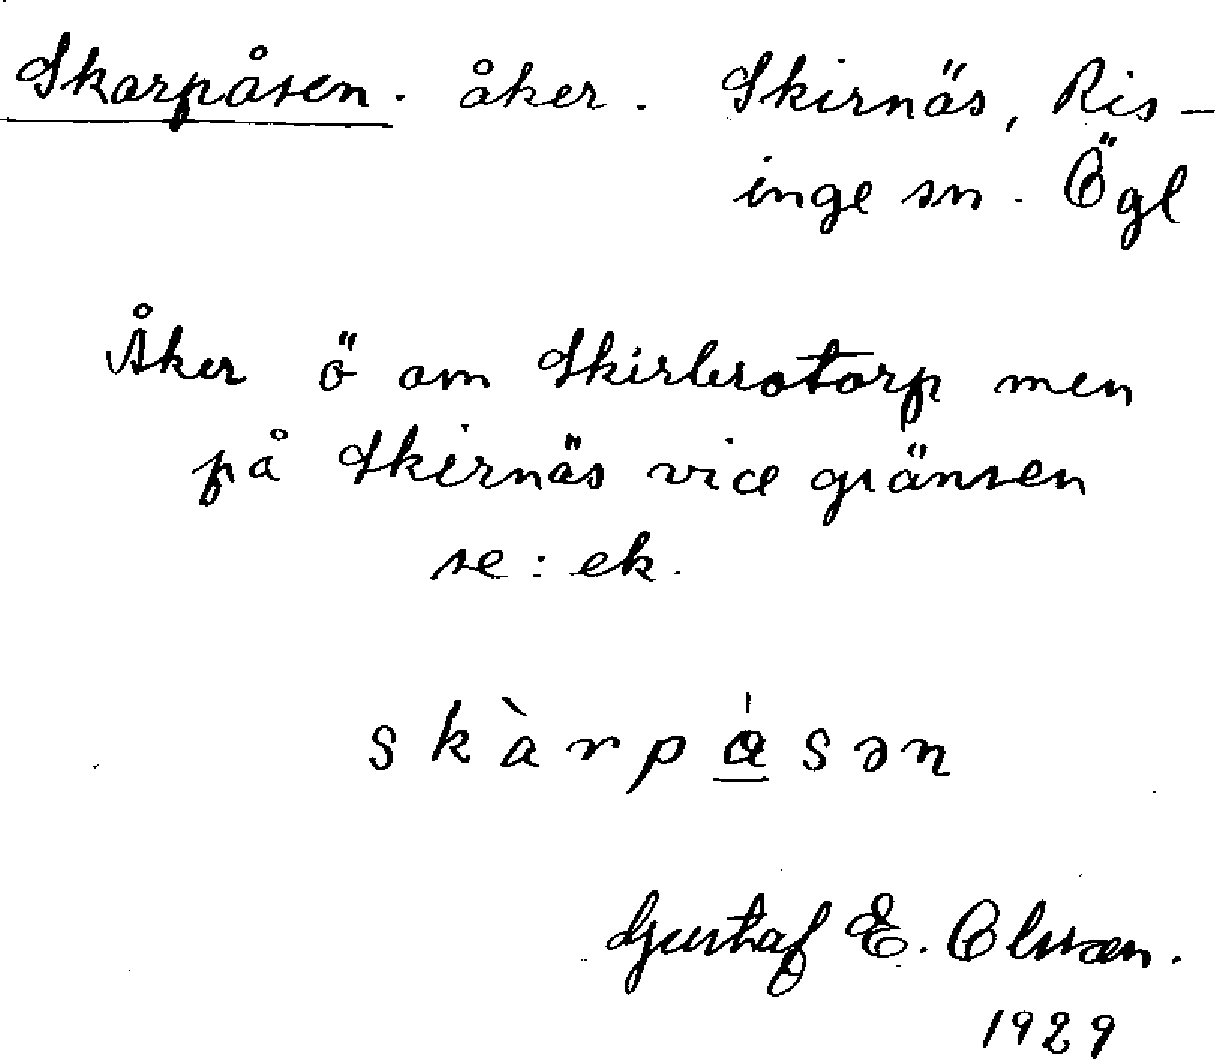 Skarpåsen. åker. Skirnäs, Ris-
inge sn. Ögl
Åker ö om Skirbrotorp men
på Skirnäs vid gränsen
se: ek.
skàrpá̲sən
Gustaf E. Olsson.
1929